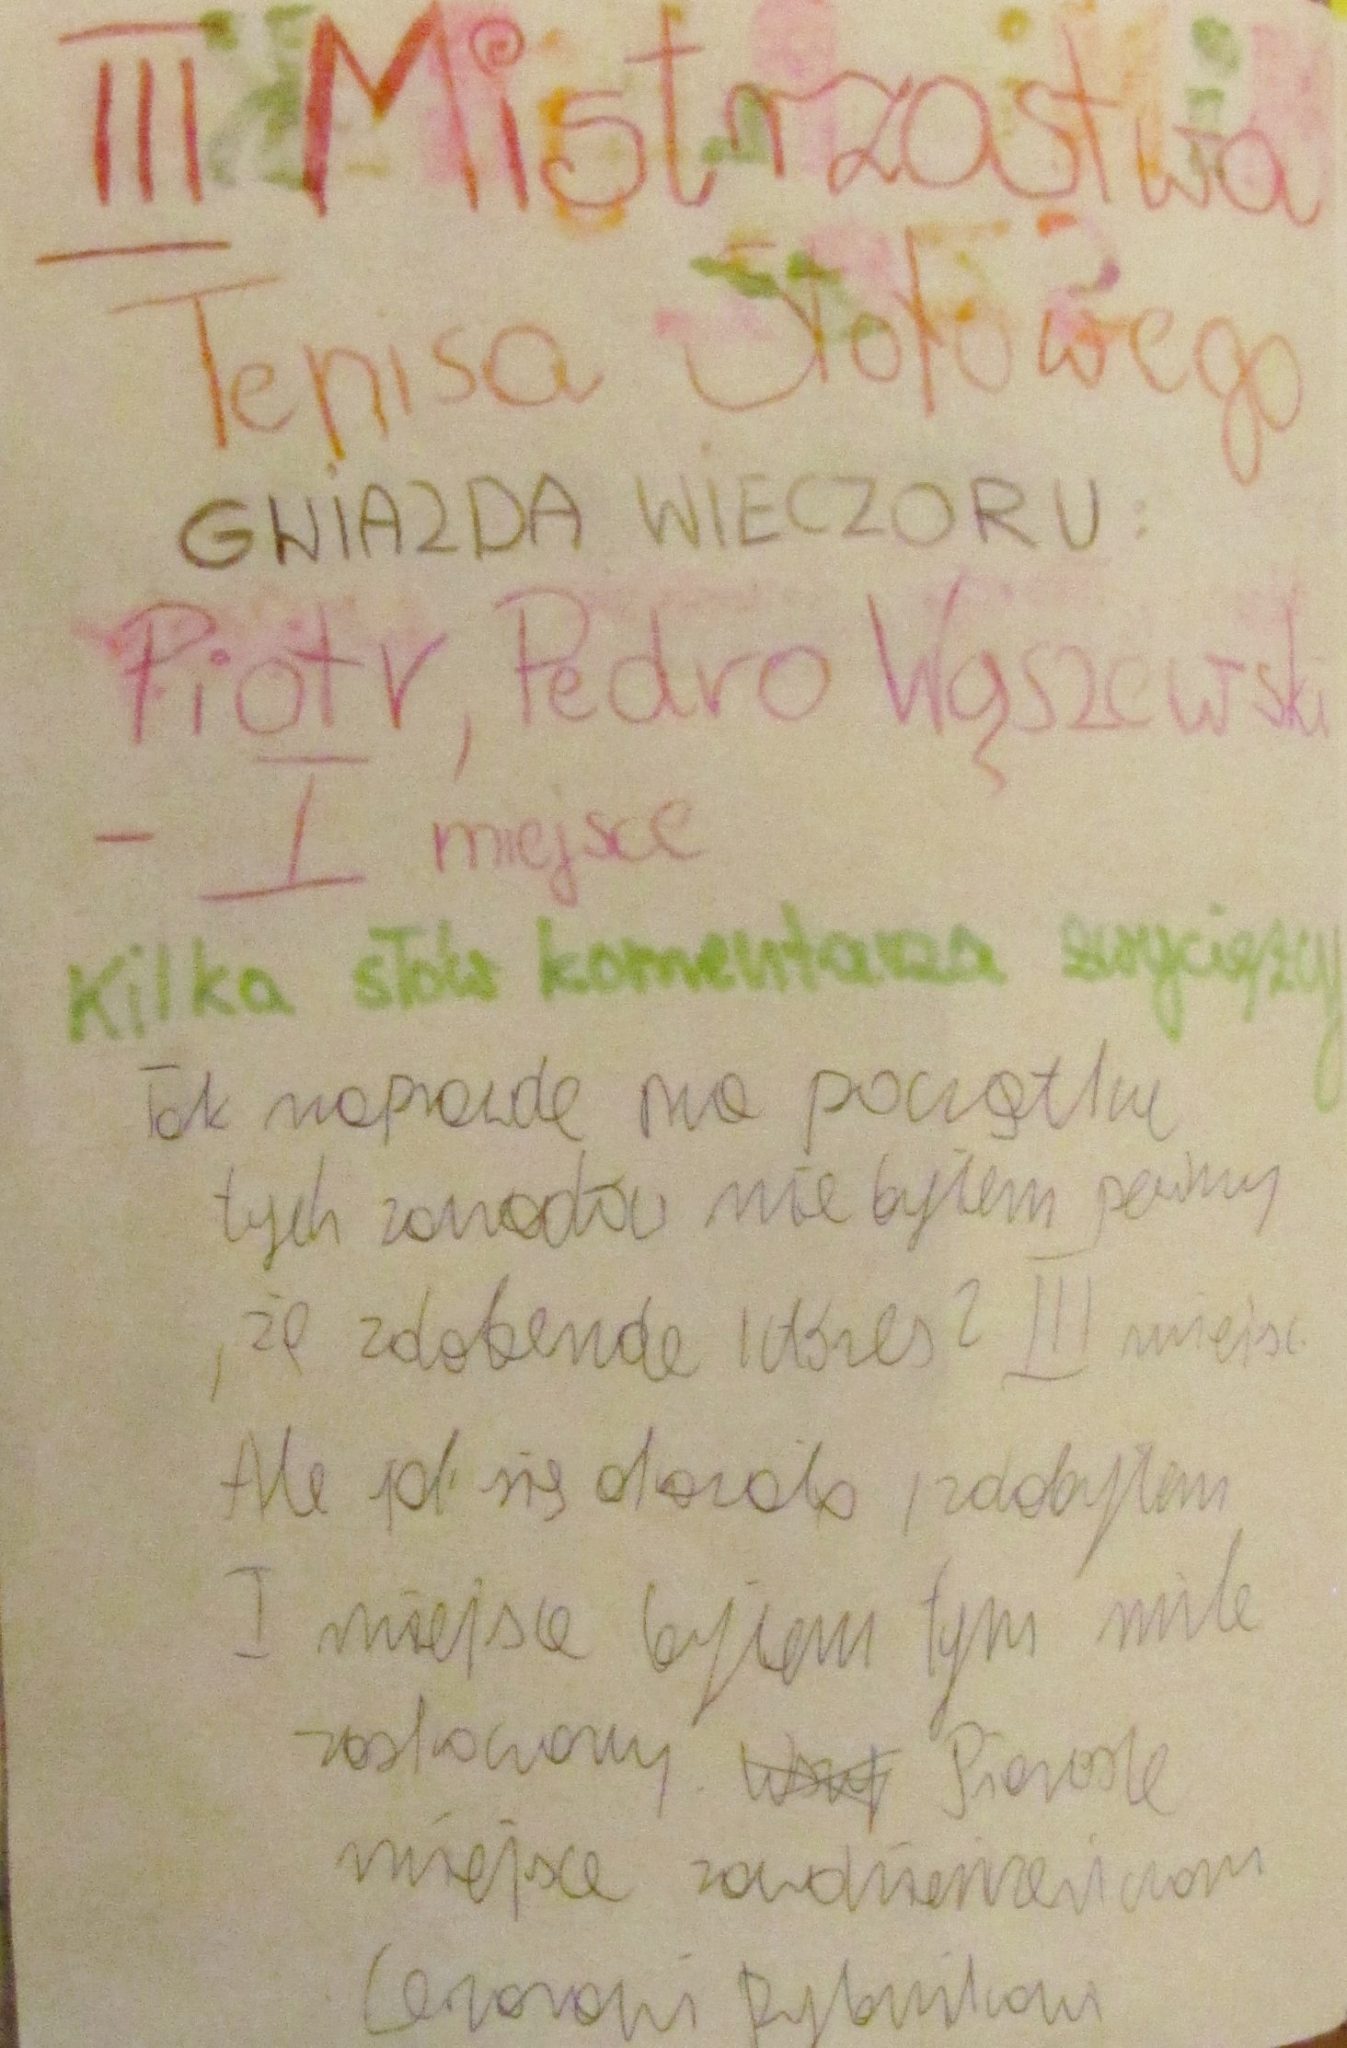 III Mistrzostwa
Tenisa Stołowego
GWIAZDA WIECZORU:
Piotr, Pedro Wąszewski
- I miejsce
Kilka słów komentarza zwycięzcy
Tak naprawdę na początku
tych zawodów nie byłem pewny
, że zdobende III miejsc
Ale jak się okazało, zdobyłem
I miejsce byłem tym mile
zaskoczony. Pierwsze
miejsce
Cezaremu Rybnikowi